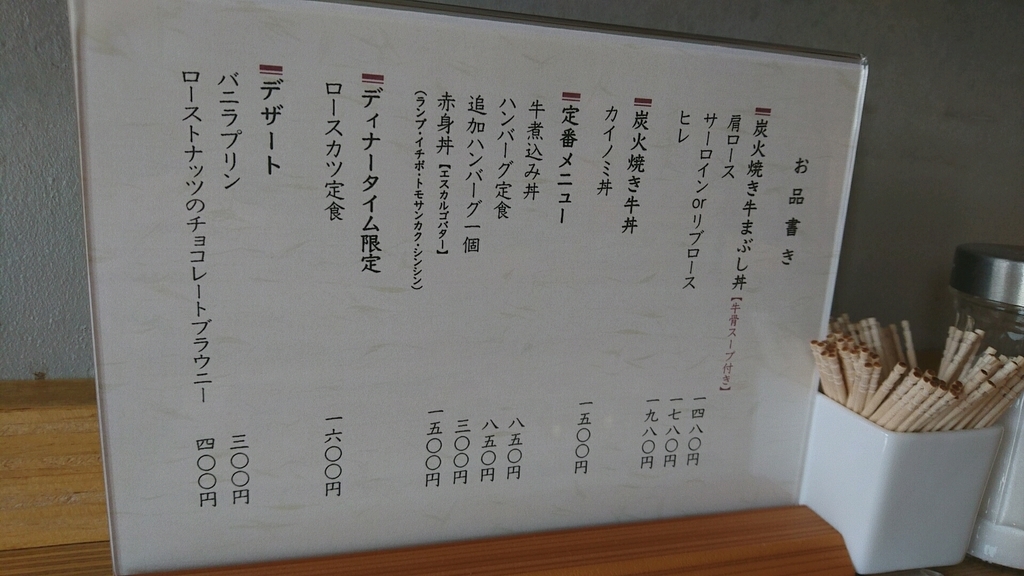 お品書き
炭火焼き牛まぶし丼【牛骨スープ付き】
肩ロース 一四八〇円
サーロインorリブロース 一七八〇円
ヒレ 一九八〇円
炭火焼き牛丼
カイノミ丼 一五〇〇円
定番メニュー
牛煮込み丼 八五〇円
ハンバーグ定食 八五〇円
追加ハンバーグ一個 三〇〇円
赤身丼【エスカルゴバター】 一五〇〇円
(ランプ・イチボ・トモサンカク・シンシン)
ディナータイム限定
ロースカツ定食 一六〇〇円
デザート
バニラプリン 三〇〇円
ローストナッツのチョコレートブラウニー 四〇〇円